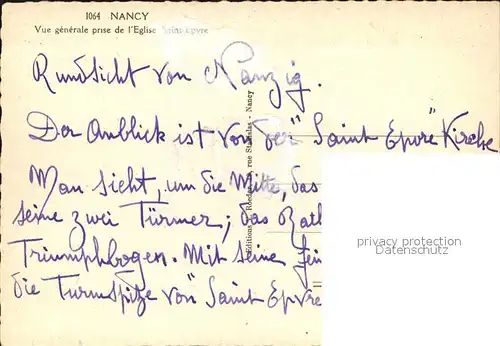 1064 NANCY
Vue générale prise de l'Eglise Saint-Epvre
Rundsicht von Nanzig.
Der Anblick ist von der "Saint Epvre" Kirche
Man sieht, um die Mitte, das
seine zwei Türmer; das Rath
Triumphbogen. Mit seine fein
die Turmspitze von "Saint Epvre
Stanislas - Nancy
Editions
privacy protection
Datenschutz